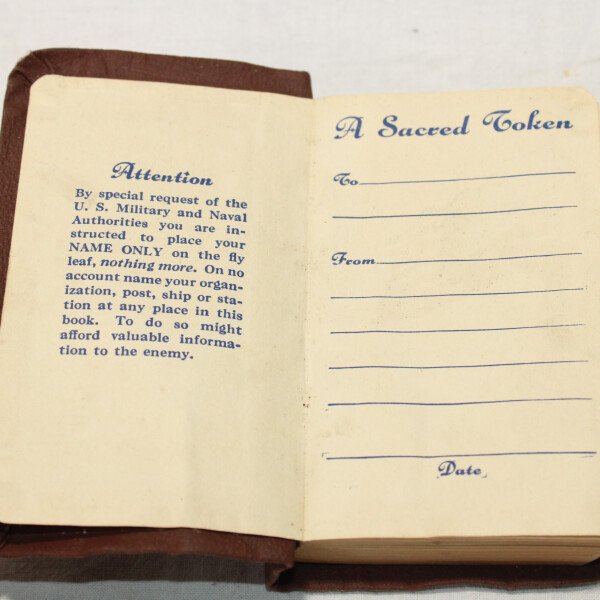 Attention
By special request of the
U. S. Military and Naval
Authorities you are in-
structed to place your
NAME ONLY on the fly
leaf, nothing more. On no
account name your organ-
ization, post, ship or sta-
tion at any place in this
book. To do so might
afford valuable informa-
tion to the enemy.
A Sacred Token
To
From
Date